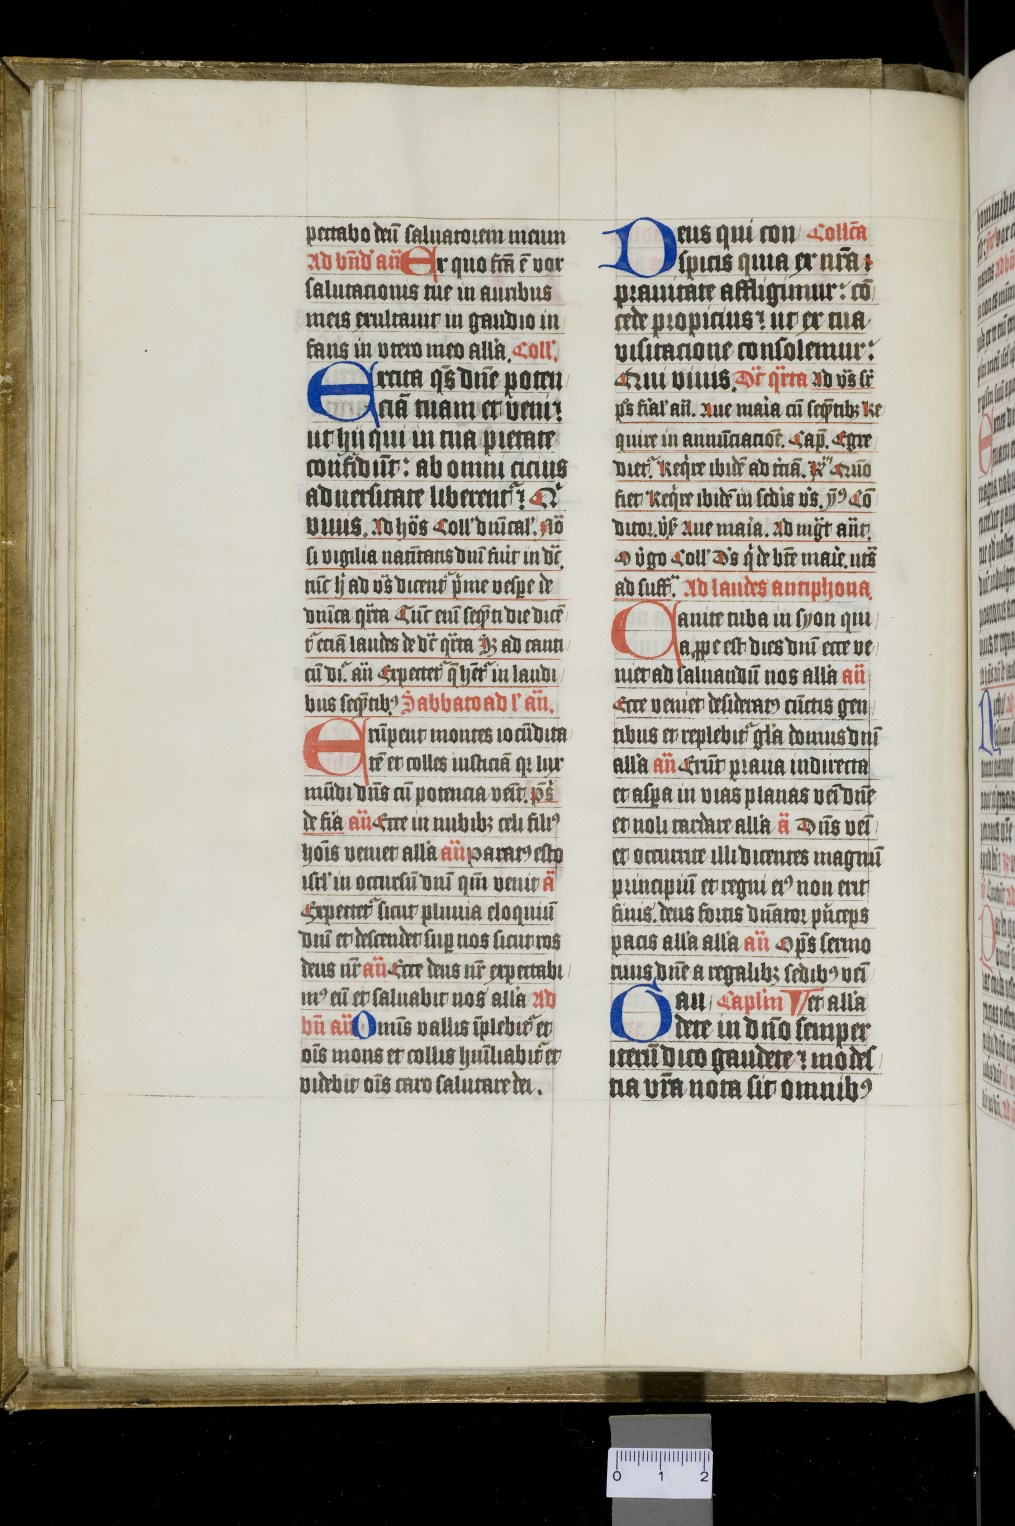 pectabo deū saluatorem meum
Ad bn̄d an̄ Ex quo fc̄a ē vox
salutacionis tue in auribus
meis exultauit in gaudio in
fans in vtero meo all'a. Coll'.
Excita qs̄ dn̄e poten
ciā tuam et veni?
ut hii qui in tua pietate
confidūt: ab omni cicius
aduersitate liberent'? Q'
viuis. Ad hōs Coll' dn̄ical'. Nō
si vigilia natītatis dn̄i fūit in dīc̄
tūc h' ad vs̄ dicent' p'me vespe de
dn̄ica q'rta Tūc enī seqn̄ti die dicē
t' eciā laudes de dn̄c q'rta Hȝ ad canti
cū di. an̄ Expectet' q' h'et' in laudi
bus seqn̄tibꝰ Sabbato ad l' an̄.
Erūpent montes iocūdita
tē et colles iusticiā qr lux
mūdi dn̄s cū potencia venit. ps̄
de fīa an̄ Ecce in nubibȝ celi filiꝰ
hoīs veniet all'a an̄ Paratꝰ esto
isrl' in occursū dn̄i qm̄ venit ā
Expectet' sicut pluuia eloquiū
dn̄i et descendet sup nos sicut ros
deus nr̄ an̄ Ecce deus nr̄ expectabi
mꝰ eū et saluabit nos all'a Ad
bn̄ an̄ Omīs vallis īplebit' et
oīs mons et collis hūiliabit' et
videbit oīs caro salutare dei.
Deus qui con Collc̄a
spicis quia ex nr̄a?
prauitate affligimur: cō
cede propicius? ut ex tua
visitacione consolemur:
Qui viuis. Dn̄c q'rta Ad vs̄ sr̄
ps̄ fial' an̄. Aue maia cū seqn̄tibȝ Re
quire in annūciacioē. Cap̄. Egre
diet'. Req're ibidē ad t'ciā. R' Quō
fiet Req're ibidē in scdis vs̄. ỹ Cō
ditor. vs̄ Aue maria. Ad mgt' ant'.
O v'go Coll' Ds̄ q' de bt̄e marie. uts̄
ad suff'. Ad laudes antiphona.
Canite tuba in syon qui
a ꝓpe est dies dn̄i ecce ve
niet ad saluandū nos all'a an̄
Ecce veniet desideratꝰ cūctis gen
tibus et replebit' gl'a domus dn̄i
all'a an̄ Erūt praua in directa
et aspa in vias planas venī dn̄e
et noli tardare all'a ā Dn̄s venī
et occurrite illi dicentes magnū
principiū et regni eiꝰ non erit
finis. deus fortis dn̄ator p'nceps
pacis all'a all'a an̄ Op̄s sermo
tuus dn̄e a regalibȝ sedibꝰ venī
Gau Capl'm et all'a
dete in dn̄o semper
iterū dico gaudete? modes
tia vr̄a nota sit omnibꝰ